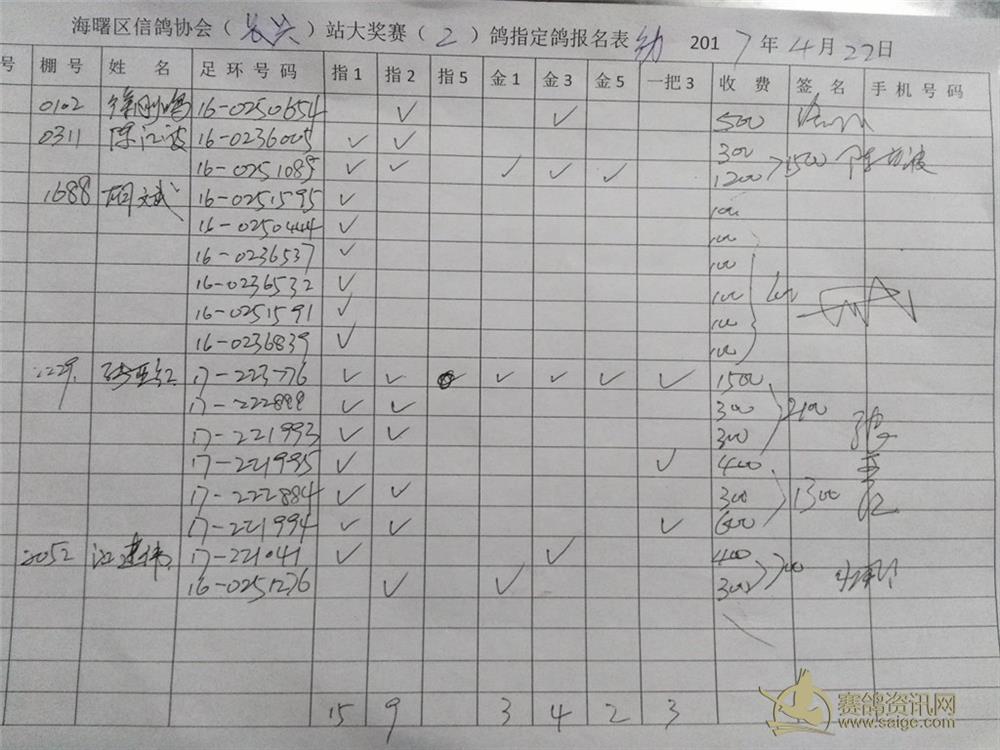 海曙区信鸽协会（长兴）站大奖赛（2）鸽指定鸽报名表 幼 2017年4月22日
号 棚号 姓名 足环号码 指1 指2 指5 金1 金3 金5 一把3 收费 签名 手机号码
0102 16-0250654 ✓ ✓ 500
0311 陈江波 16-0236005 ✓ ✓ 300
16-0251089 ✓ ✓ ✓ ✓ ✓ 1200 1500 陈江波
1688 胡文斌 16-0251595 ✓ 100
16-0250444 ✓ 100
16-0236537 ✓ 100
16-0236532 ✓ 100
16-0251591 ✓ 100
16-0236839 ✓ 100
17-223776 ✓ ✓ ✓ ✓ ✓ ✓ 1500
17-222899 ✓ ✓ 300 2100
17-221993 ✓ ✓ 300
17-221995 ✓ ✓ 400
17-222884 ✓ ✓ 300 1300
17-221994 ✓ ✓ ✓ 600
2052 江建伟 17-221041 ✓ ✓ 400 700
16-0251276 ✓ ✓ 300
15 9 3 4 2 3
赛鸽资讯网
www.saige.com